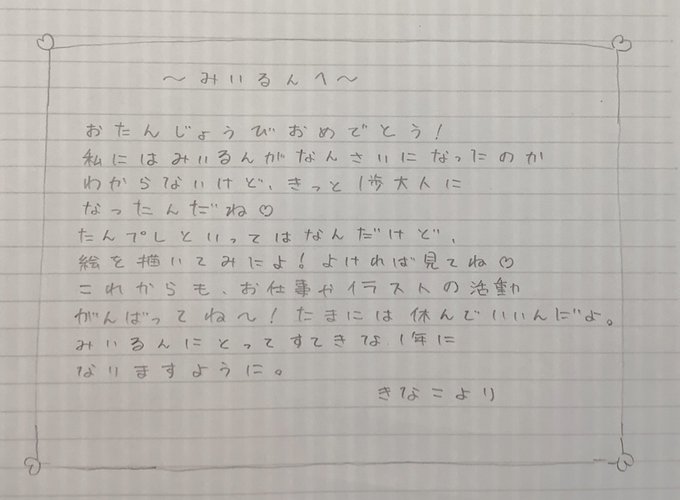 〜みいるんへ〜
おたんじょうびおめでとう!
私にはみいるんがなんさいになったのか
わからないけど、きっと1歩大人に
なったんだね♡
たんプレといってはなんだけど、
絵を描いてみたよ!よければ見てね♡
これからも、お仕事やイラストの活動
がんばってね〜!たまには休んでいいんだよ。
みいるんにとってすてきな1年に
なりますように。
きなこより